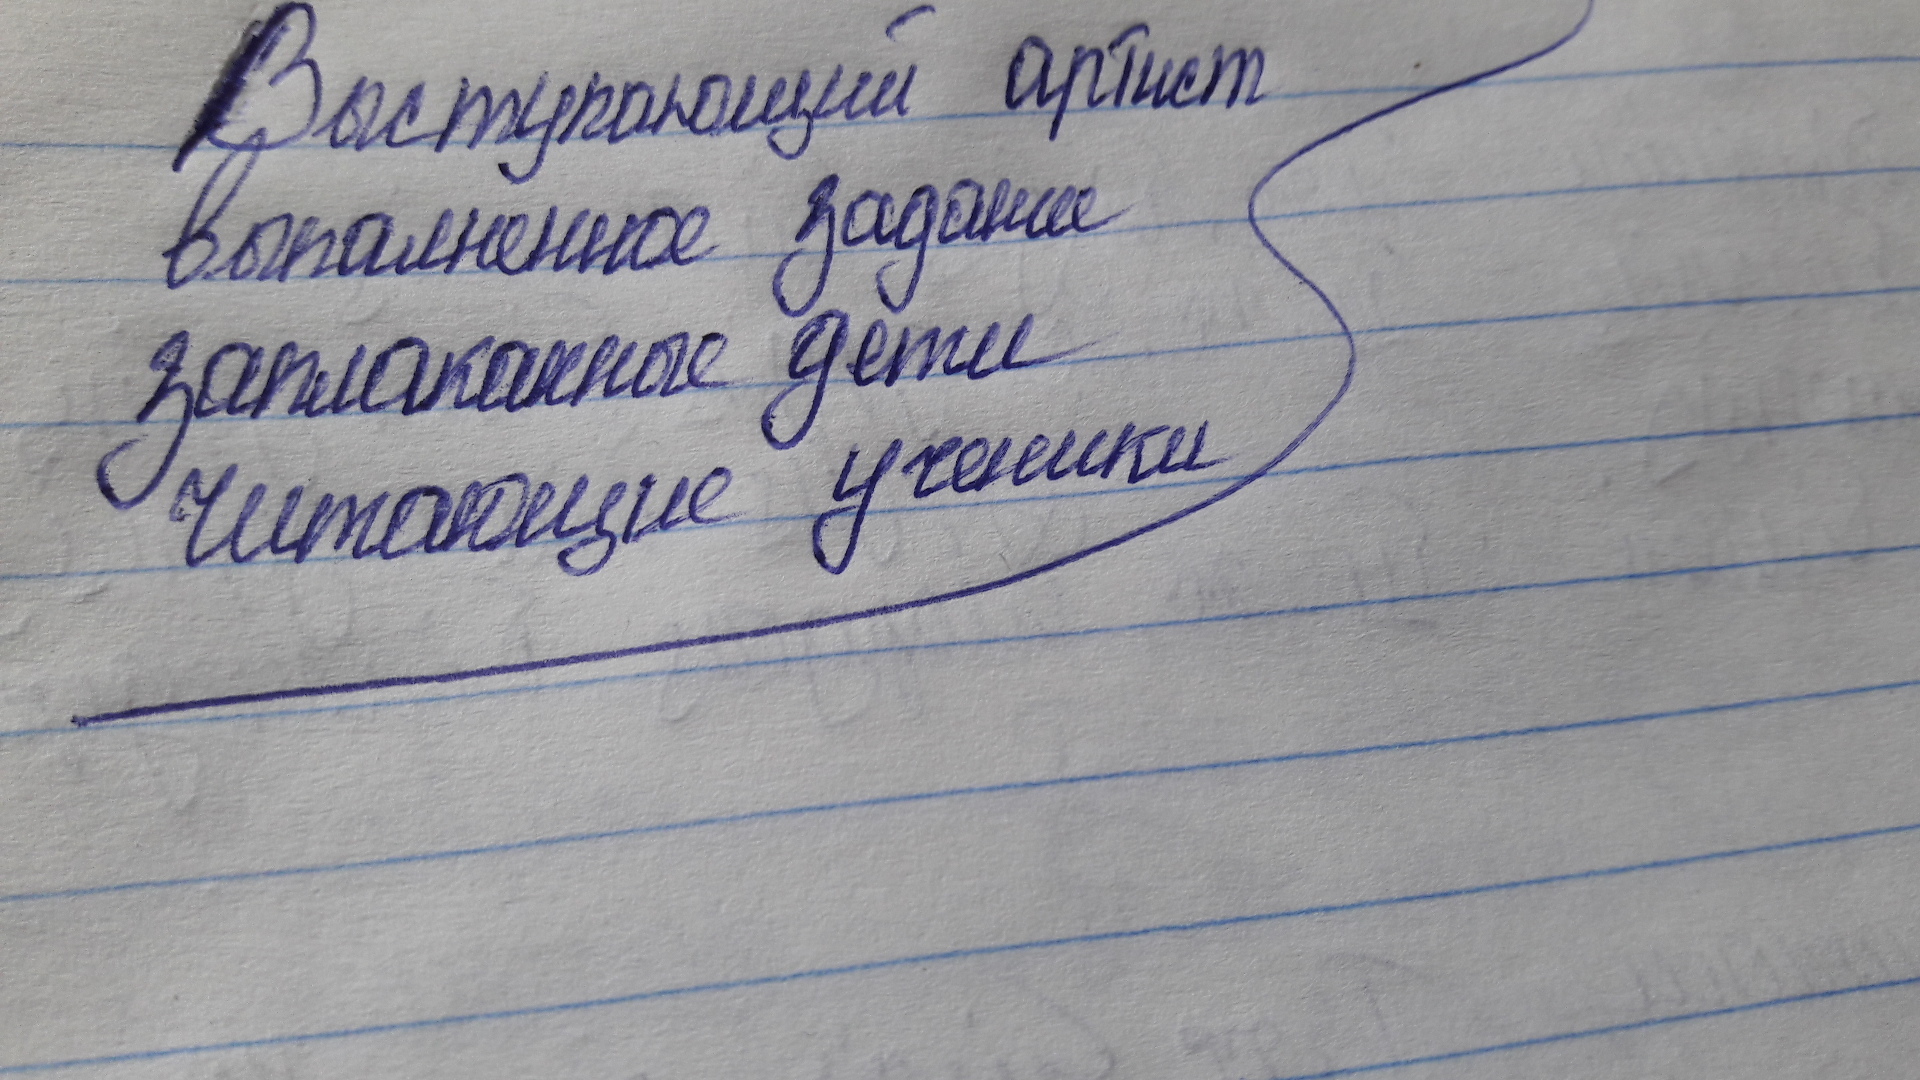 Выступающий артист
выполненное задание
заплаканные дети
читающие ученики